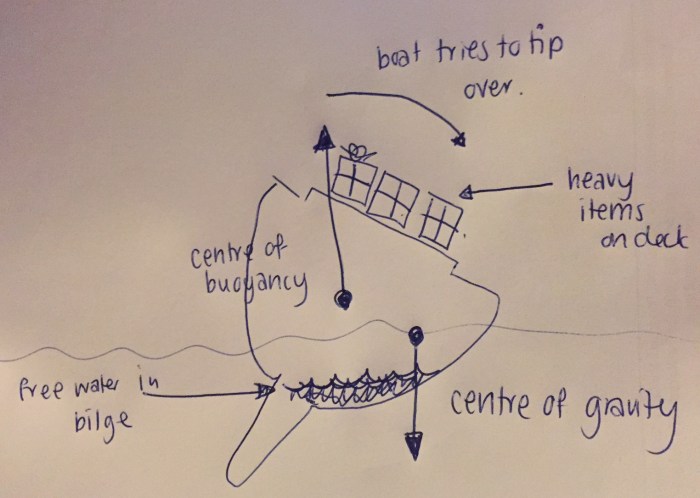 boat tries to tip
over.
heavy
items
on deck
centre of
buoyancy
free water in
bilge
centre of gravity